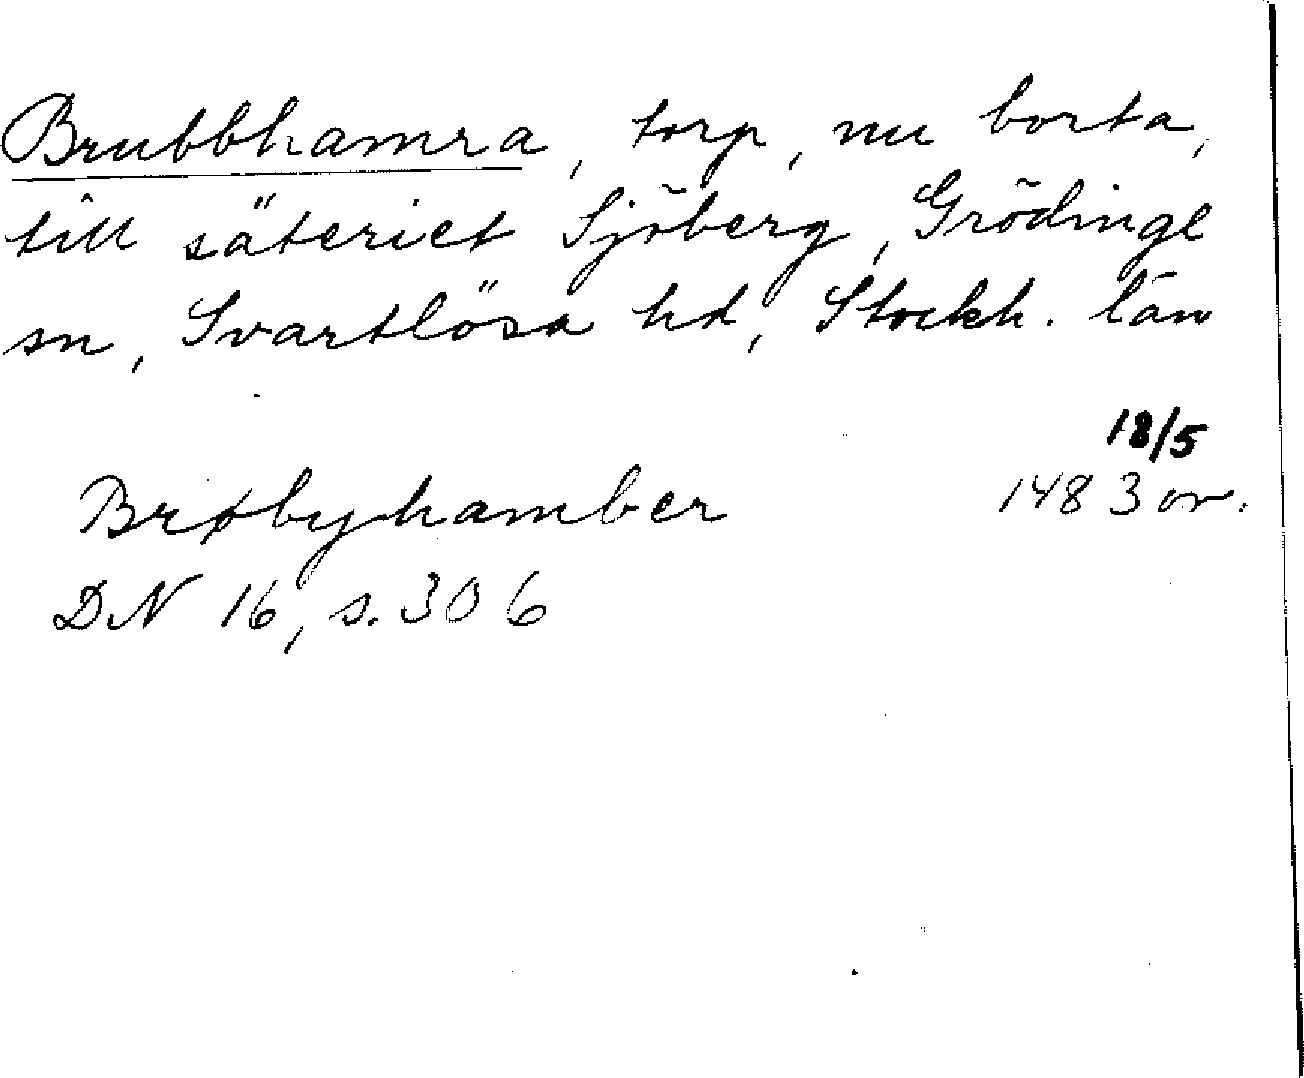 Brubbhamra, torp, nu borta,
till säteriet Sjöberg, Grödinge
sn, Svartlösa hd, Stockh. län
18/5
Brøbyhamber 1483 or.
DN 16, s. 306